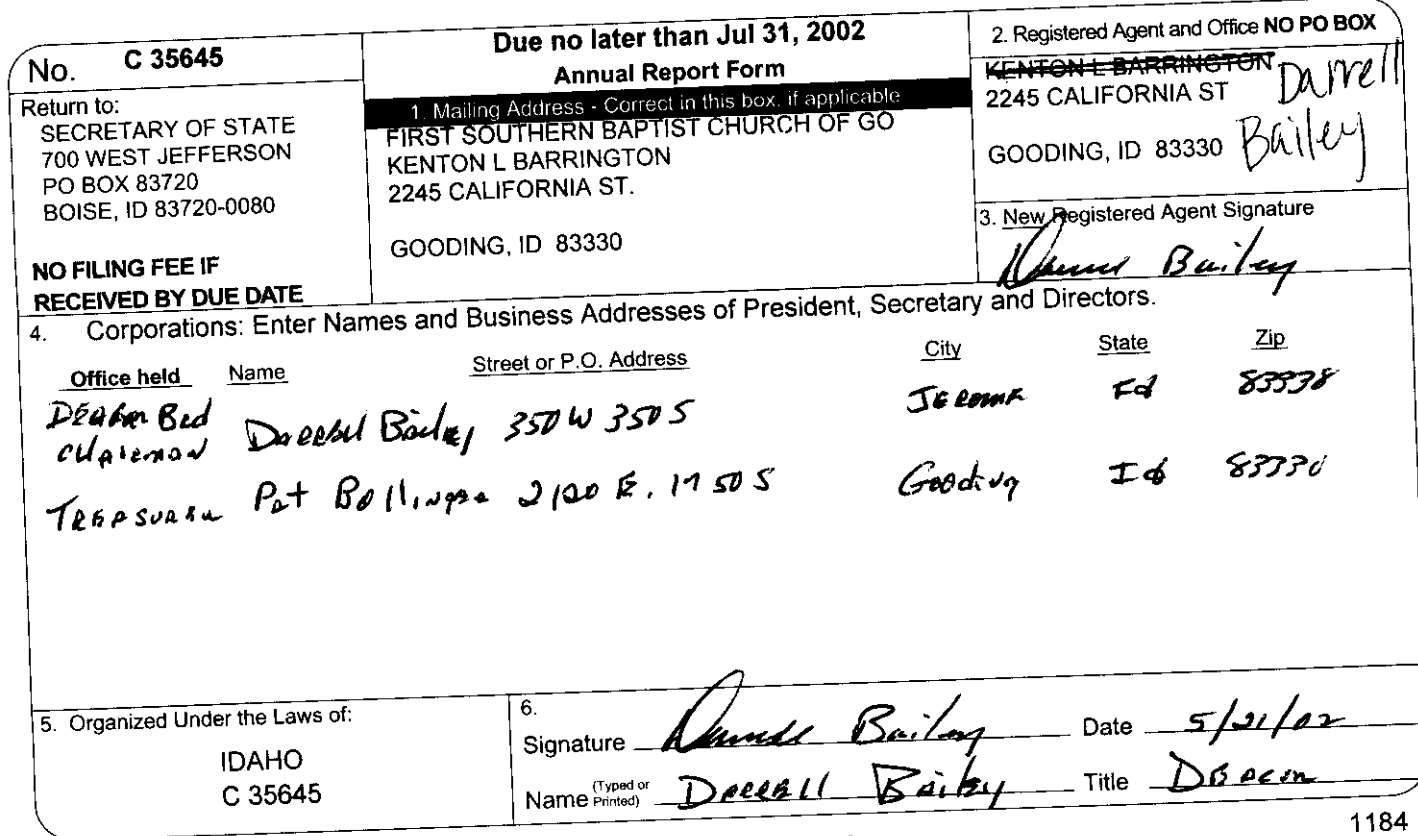 No. C 35645
Return to:
SECRETARY OF STATE
700 WEST JEFFERSON
PO BOX 83720
BOISE, ID 83720-0080
NO FILING FEE IF
RECEIVED BY DUE DATE
Due no later than Jul 31, 2002
Annual Report Form
1. Mailing Address - Correct in this box, if applicable
FIRST SOUTHERN BAPTIST CHURCH OF GO
KENTON L BARRINGTON
2245 CALIFORNIA ST.
GOODING, ID 83330
2. Registered Agent and Office NO PO BOX
KENTON L BARRINGTON Darrell
2245 CALIFORNIA ST
GOODING, ID 83330 Bailey
3. New Registered Agent Signature
Bailey
4. Corporations: Enter Names and Business Addresses of President, Secretary and Directors.
Office held Name Street or P.O. Address City State Zip
Deacon Chairman Darrell Bailey 350 W 350 S Jerome Id 83338
Treasurer Pat 2120 E. 1750 S Gooding Id 83330
5. Organized Under the Laws of:
IDAHO
C 35645
6.
Signature Bailey Date 5/21/02
Name (Typed or Printed) Darrell Bailey Title Deacon
1184